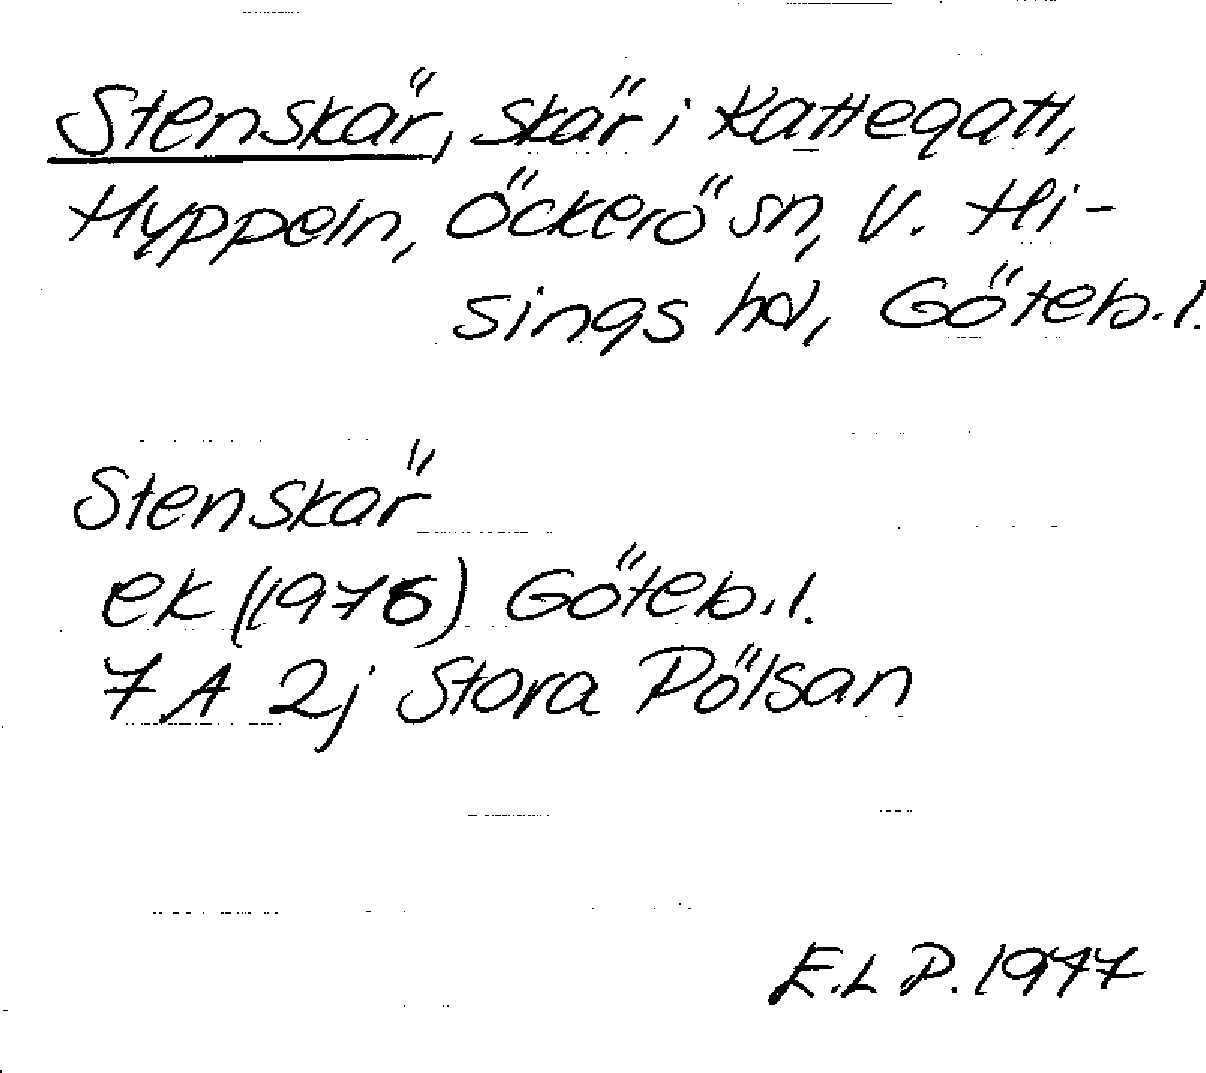 Stenskär, skär i Kattegatt,
Hyppeln, Öckerö sn, V. Hi-
sings hd, Göteb.l.
Stenskär
ek (1976) Göteb.l.
7 A 2j Stora Pölsan
E.L P. 1977